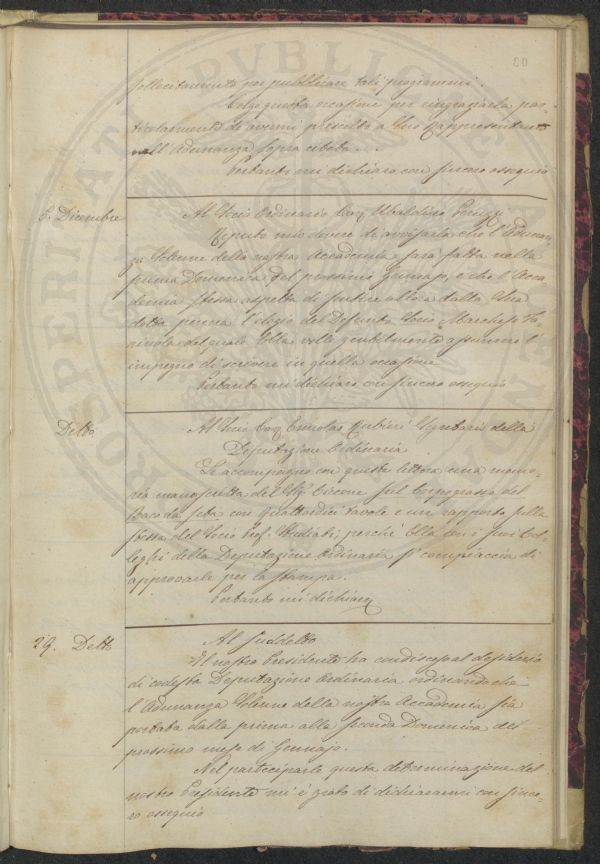 80
sollecitamente per pubblicare tali programmi.
Colgo questa occasione per ringraziarla par-
ticolarmente di avermi prescelto a Suo Rappresentante
nell'Adunanza sopra citata...
Pertanto mi dichiaro con sincero ossequio
6. Dicembre
Al Socio Ordinario Cav Ubaldino Peruzzi
Reputo mio dovere di avvisarla che l'Adunan-
za Solenne della nostra Accademia sarà fatta nella
prima Domenica del prossimo Gennajo, e che l'Acca-
demia stessa aspetta di sentire allora dalla Sua
dotta penna l'elogio del Defunto Socio Marchese
del quale Ella volle gentilmente assumere l'
impegno di scrivere in quella occasione
Pertanto mi dichiaro con sincero ossequio
Detto
Al Socio Cav Ermolao Rubieri Segretario della
Deputazione Ordinaria.
Le accompagno con questa lettera una memo-
ria manoscritta del Sig Ciccone sul Corpo grasso del
Baco da seta con quattordici tavole e un rapporto sulla
stessa del Socio Prof. Studiati, perchè Ella con i suoi Col-
leghi della Deputazione Ordinaria si compiaccia di
approvarle per la stampa.
Pertanto mi dichiaro
29. Detto
Al Suddetto
Il nostro Presidente ha condisceso al desiderio
di codesta Deputazione Ordinaria ordinando che
l'Adunanza Solenne della nostra Accademia sia
portata dalla prima alla seconda Domenica del
prossimo mese di Gennajo.
Nel parteciparle questa determinazione del
nostro Presidente mi è grato di dichiararmi con since-
ro ossequio